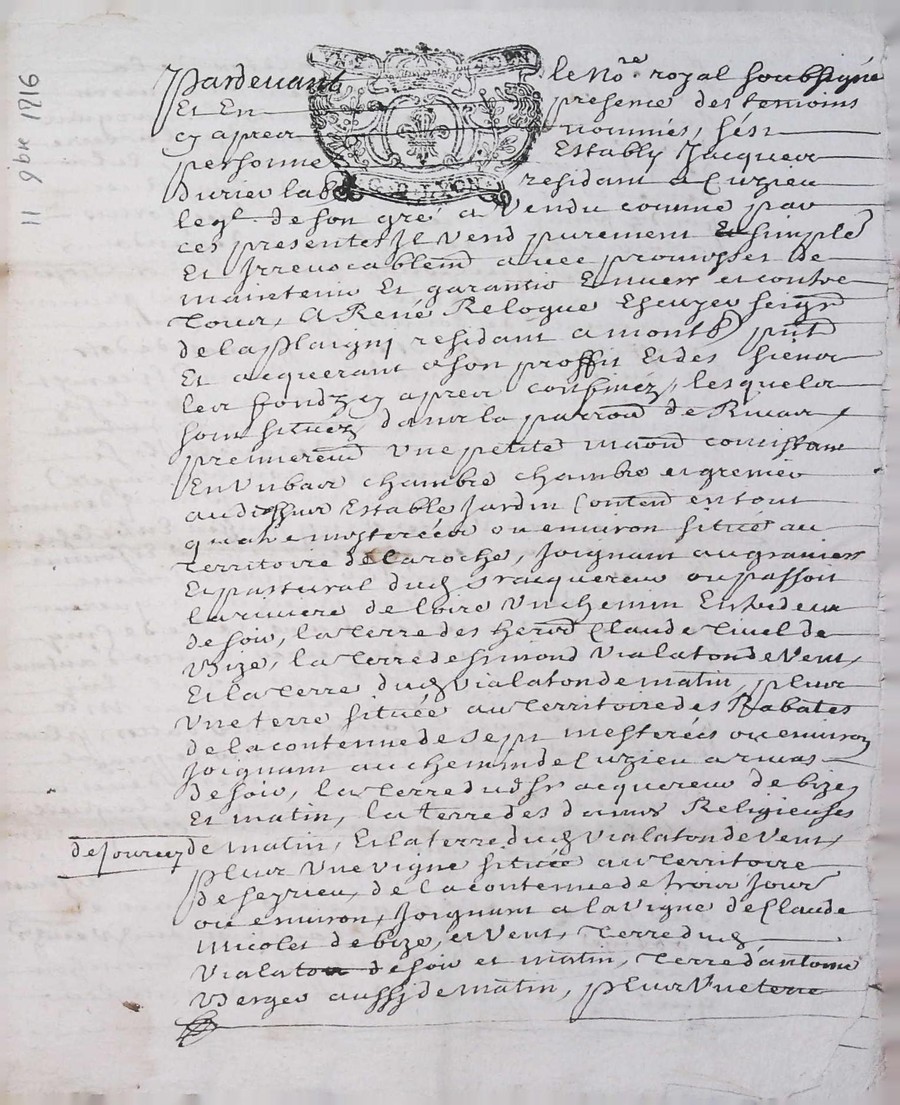 11 9bre 1716
Pardevant le No.re royal soubsigné
Et En presence des temoins
cy apres nommés, sést
personne Estably Jacques
Durier lab resident a Cuzieu
leql. de son gré a vendu comme par
ces presentes Il vend purement Et simplet
Et Irrevocablemt avec promesses de
maintenir Et garantir Envers et contre
Tous, A René Relogue Escuyer seigr
de la plaigny resident a montb pnt
Et acquerant a son proffit Et des siens
les fondz cy apres confinéz, lesquels
sont situéz dans la parroisse de Rivas
premierement Une petite maison consistant
En Un bas chambre chambre et grenier
au dessus Estable Jardin Contend en tout
quatre mesterées ou environ située au
territoire de la roche, Joignant au graviers
Et pastural dud sr acquereur ou passoit
la riviere de loire Un chemin Entredeux
de soir, la terre des hers Claude de
Bize, la terre de simond Vialaton de Vent,
Et la terre dud Vialaton de matin, plus
Une terre située au territoire des Rabates
de la contenue de sept mesterées ou environ
Joignant au chemin de Cuzieu a rivas
de soir, la terre dud sr acquereur de bize,
Et matin, la terre des dames Religieuses
de Jourcey de matin, Et la terre dud Vialaton de Vent,
plus Une vigne située au territoire
de la contenue de trois Jour
ou environ, Joignant a la vigne de Claude
Micolet de bize, et Vent, terre dud
Vialaton de soir et matin, terre d'antoine
Verger aussy de matin, plus Une terre